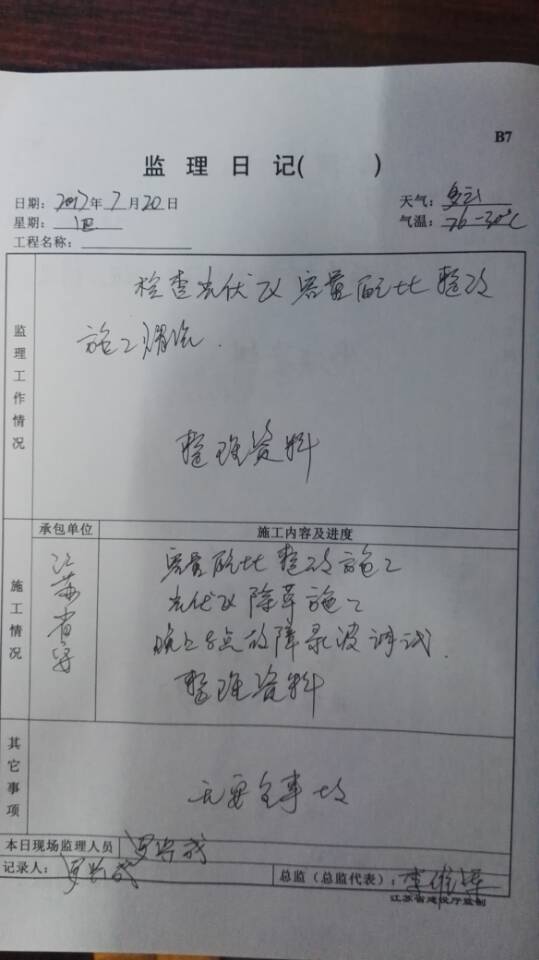 B7
监 理 日 记( )
日期: 2017年 7 月 20 日
天气: 多云
星期: 四
气温: 26-30℃
工程名称:
监理工作情况
检查光伏区容量配比整改
施工情况.
整理资料
承包单位
施工内容及进度
施工情况
江苏省安
容量配比整改施工
光伏区除草施工
晚上8点故障录波调试.
整理资料
其它事项
无安全事故
本日现场监理人员
记录人:
总监(总监代表):
江苏省建设厅监制